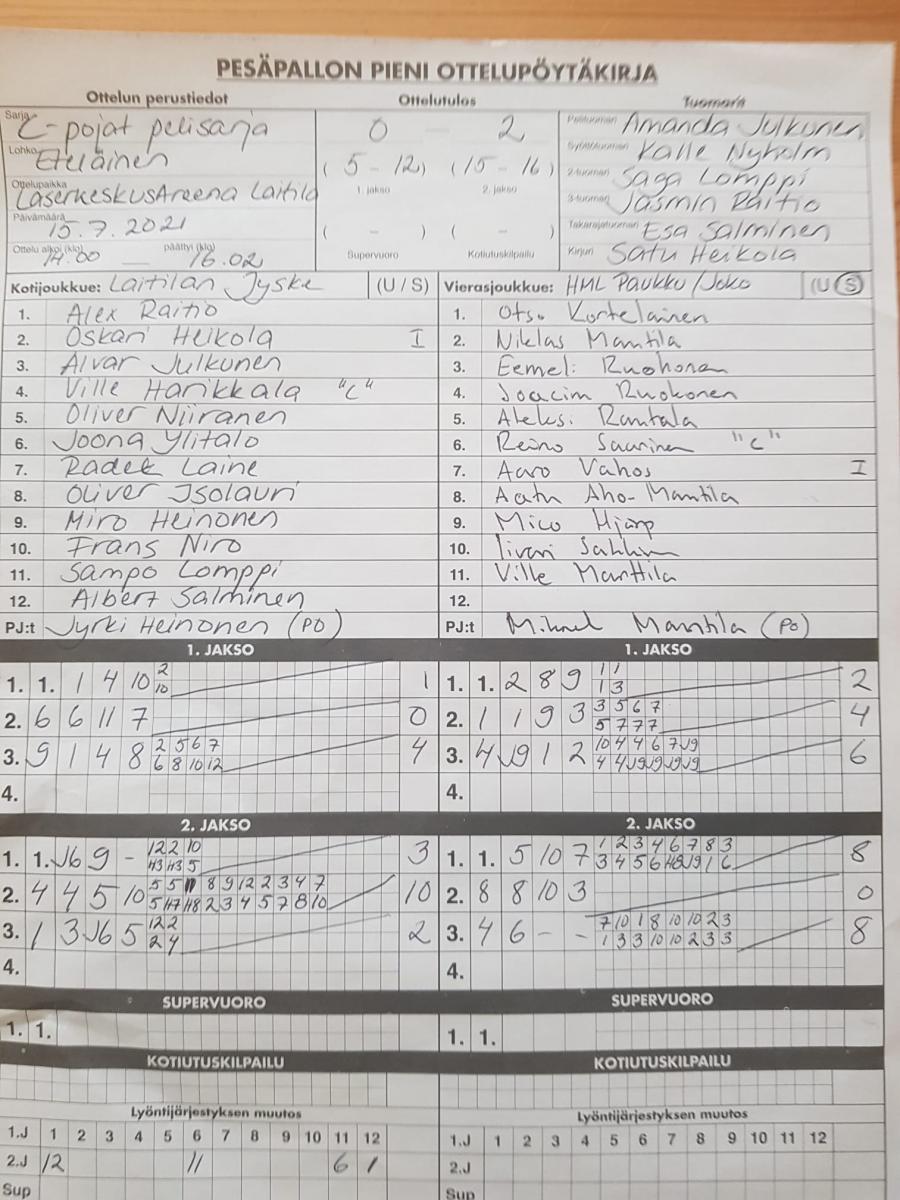 PESÄPALLON PIENI OTTELUPÖYTÄKIRJA
Ottelun perustiedot Ottelutulos Tuomarit
Sarja C-pojat pelisarja 0 - 2 Pelituomari Amanda Julkunen
Lohko Eteläinen (5 - 12) (15 - 16) Syöttötuomari Kalle Nyholm
Ottelupaikka LaserkeskusAreena Laitila 1. jakso 2. jakso 2-tuomari Saga Lomppi
Päivämäärä 15.7.2021 3-tuomari Jasmin Raitio
( - ) ( - ) Takarajatuomari Esa Salminen
Ottelu alkoi (klo) 14.00 päättyi (klo) 16.02 Supervuoro Kotiutuskilpailu Kirjuri Satu Heikola
Kotijoukkue: Laitilan Jyske (U / S) Vierasjoukkue: HML Paukku/Joko (U S)
1. Alex Raitio 1. Otso Kortelainen
2. Oskari Heikola I 2. Niklas Mantila
3. Alvar Julkunen 3. Eemeli Ruohonen
4. Ville Harikkala "C" 4. Joacim Ruokonen
5. Oliver Niiranen 5. Aleksi Rantala
6. Joona Ylitalo 6. Reino Saarinen "C"
7. Radek Laine 7. Aaro Vahos I
8. Oliver Isolauri 8. Aatu Aho-Mantila
9. Miro Heinonen 9. Mico Hjarp
10. Frans Niro 10. Iivari
11. Sampo Lomppi 11. Ville Manttila
12. Albert Salminen 12.
PJ:t Jyrki Heinonen (PO) PJ:t Mikael Mantila (PO)
1. JAKSO 1. JAKSO
1. 1. 1 4 10 2 1 1. 1. 2 8 9 1 1 2
10 1 3
2. 6 6 11 7 0 2. 1 1 9 3 3 5 6 7 4
5 7 7 7
3. 9 1 4 8 2 5 6 7 4 3. 4 J9 1 2 10 4 4 6 7 J9 6
6 8 10 12 4 4 J9 J9 J9 J9
4. 4.
2. JAKSO 2. JAKSO
1. 1. J6 9 - 12 2 10 3 1. 1. 5 10 7 1 2 3 4 6 7 8 3 8
H3 H3 5 3 4 5 6 H8 J9 1 6
2. 4 4 5 10 5 5 11 8 9 12 2 3 4 7 10 2. 8 8 10 3 0
5 H7 H8 2 3 4 5 7 8 10
3. 1 3 J6 5 12 2 2 3. 4 6 - - 7 10 1 8 10 10 2 3 8
2 4 1 3 3 10 10 2 3 3
4. 4.
SUPERVUORO SUPERVUORO
1. 1. 1. 1.
KOTIUTUSKILPAILU KOTIUTUSKILPAILU
Lyöntijärjestyksen muutos Lyöntijärjestyksen muutos
1.J 1 2 3 4 5 6 7 8 9 10 11 12 1.J 1 2 3 4 5 6 7 8 9 10 11 12
2.J 12 11 6 1 2.J
Sup Sup